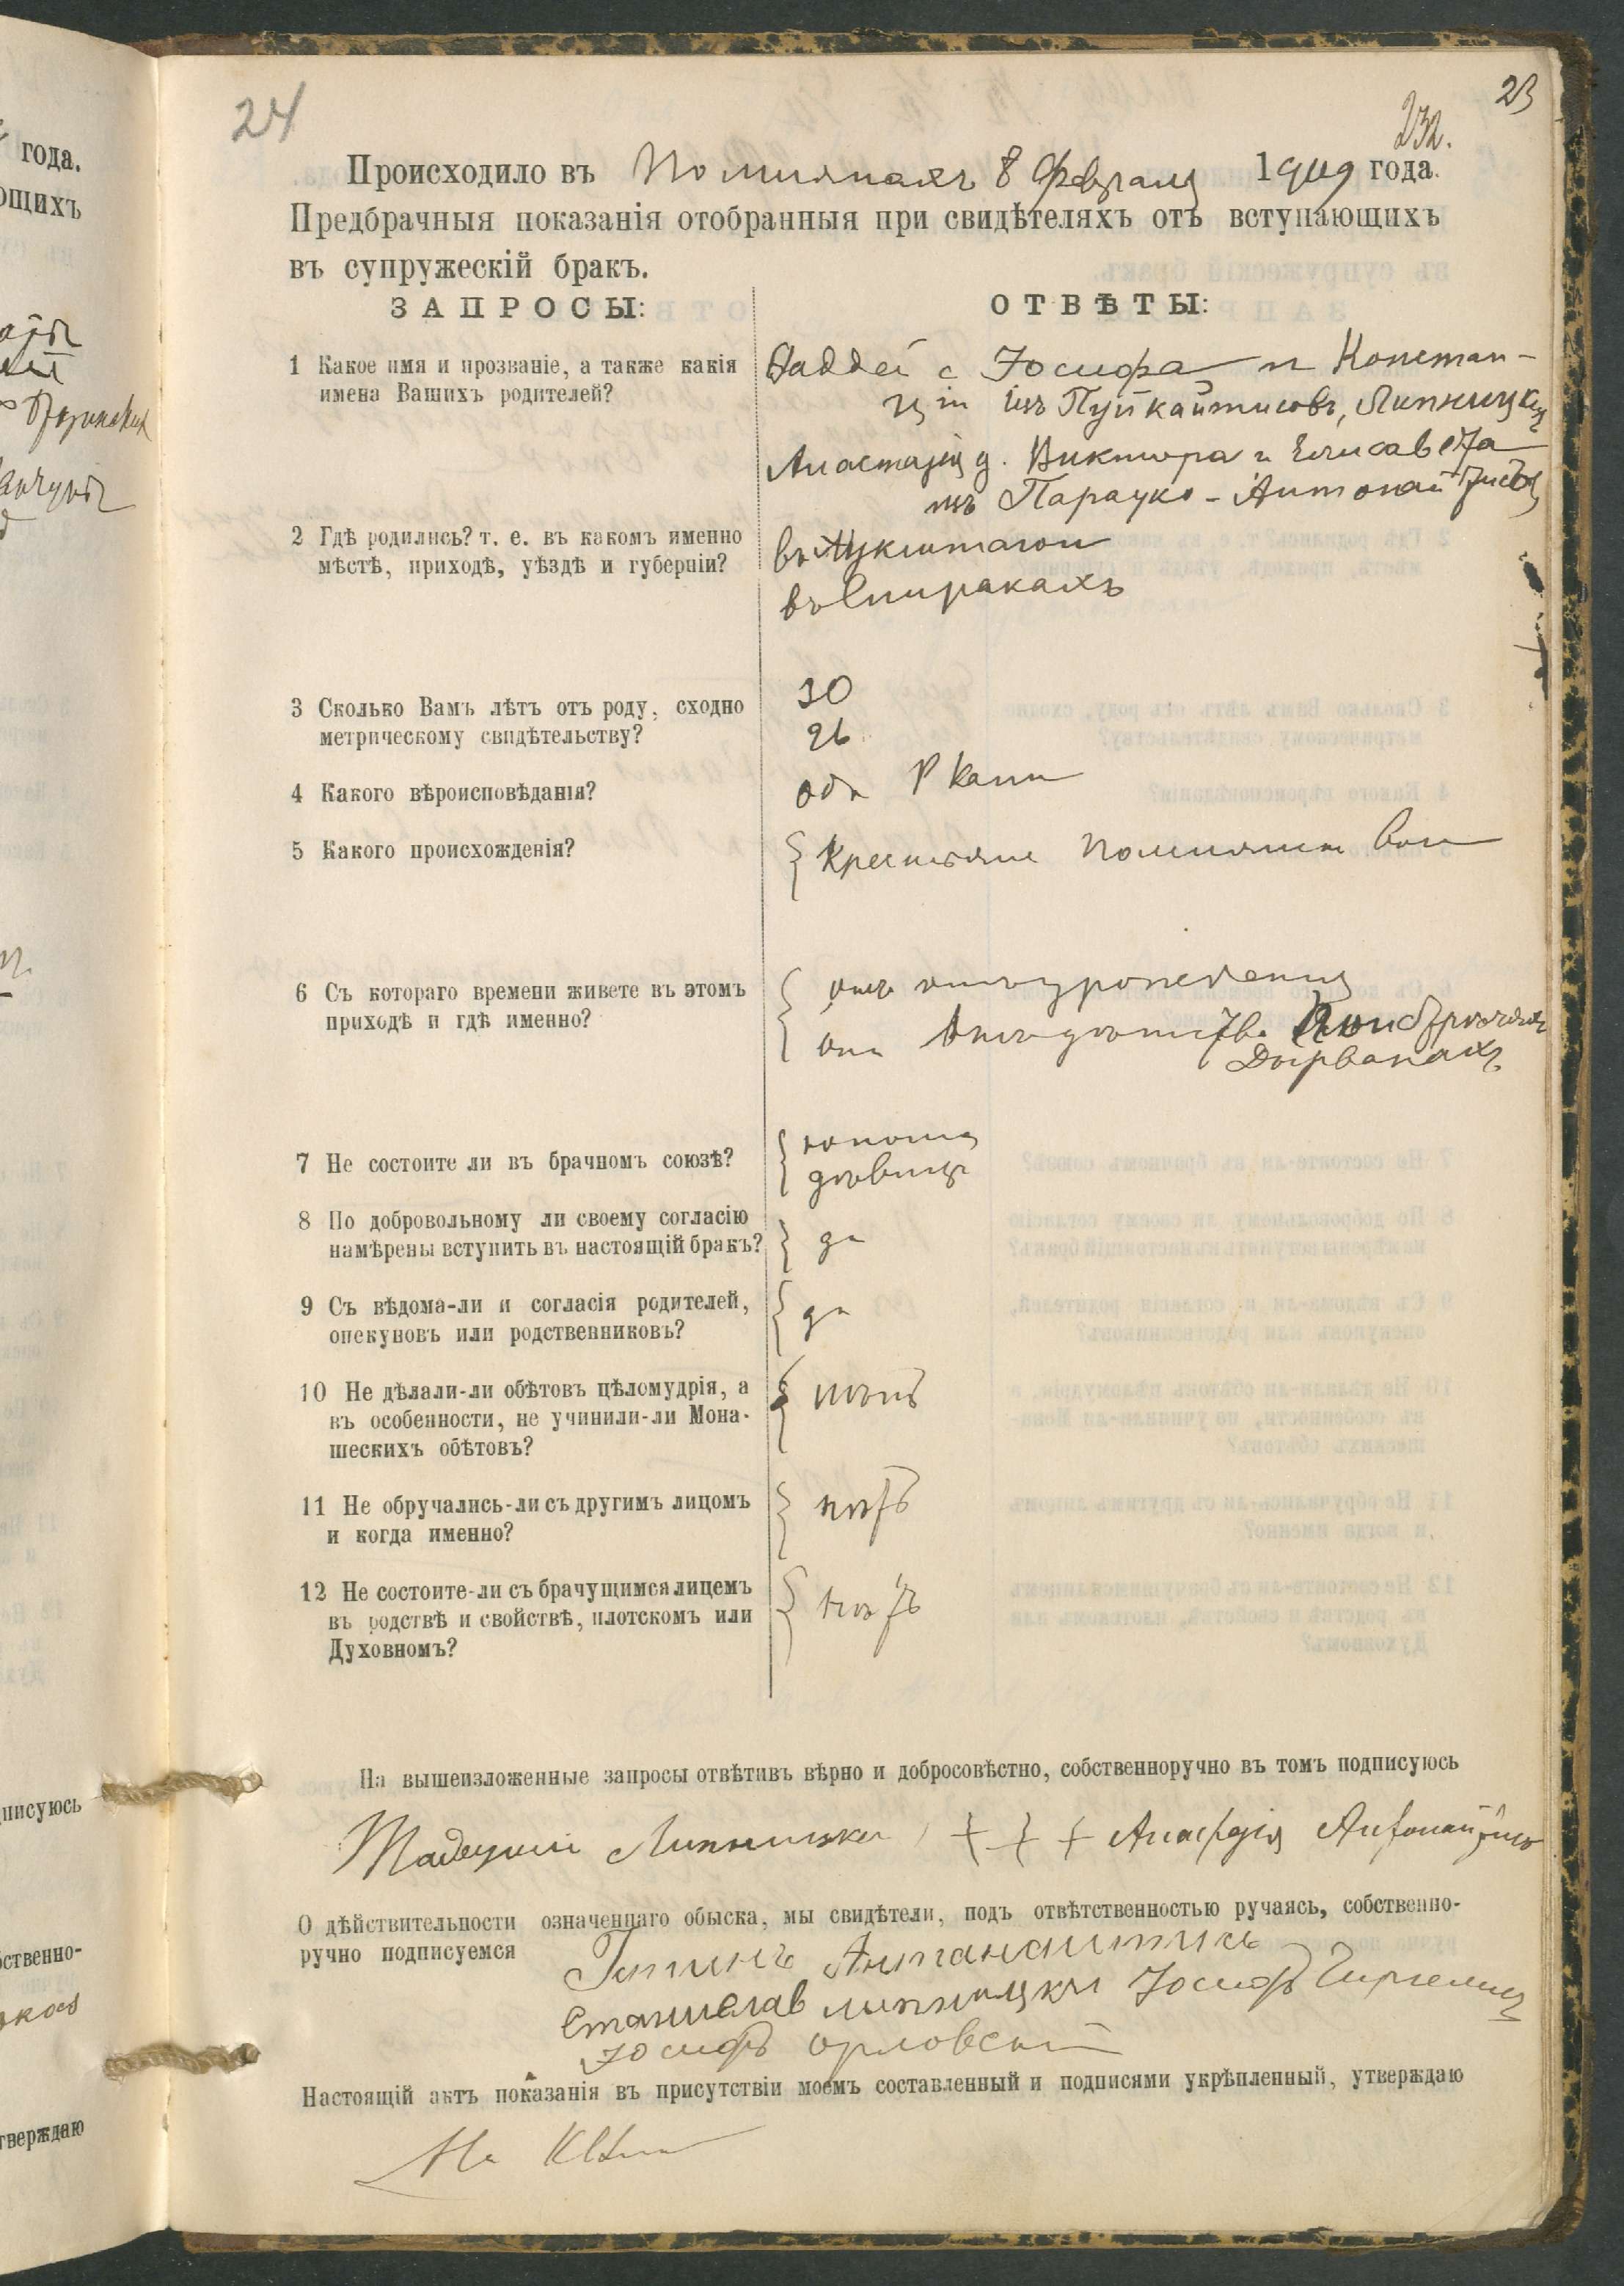 24
23
232.
Происходило въ Помиянахъ 8 февраля 1909 года.
Предбрачныя показанія отобранныя при свидѣтеляхъ отъ вступающихъ
въ супружескій бракъ.
ЗАПРОСЫ:
ОТВѢТЫ:
1 Какое имя и прозваніе, а также какія
имена Вашихъ родителей?
Фаддей с Іосифа и Констан-
ціи изъ Пуйкайтисовъ, Липницкій
Анастазія д. Виктора и Елисавета
изъ Парауко-Антонайтисъ
2 Гдѣ родились? т. е. въ какомъ именно
мѣстѣ, приходѣ, уѣздѣ и губерніи?
въ
въ Спиракахъ
3 Сколько Вамъ лѣтъ отъ роду, сходно
метрическому свидѣтельству?
30
26
4 Какого вѣроисповѣданія?
оба Р Кат
5 Какого происхожденія?
Крестьяне Помиянск Вол
6 Съ котораго времени живете въ этомъ
приходѣ и гдѣ именно?
онъ отъ урожденія
она
Дырванахъ
7 Не состоите ли въ брачномъ союзѣ?
юноша
дѣвица
8 По добровольному ли своему согласію
намѣрены вступить въ настоящій бракъ?
да
9 Съ вѣдома-ли и согласія родителей,
опекуновъ или родственниковъ?
да
10 Не дѣлали-ли обѣтовъ цѣломудрія, а
въ особенности, не учинили-ли Мона-
шескихъ обѣтовъ?
нѣтъ
11 Не обручались-ли съ другимъ лицомъ
и когда именно?
нѣтъ
12 Не состоите-ли съ брачущимся лицемъ
въ родствѣ и свойствѣ, плотскомъ или
Духовномъ?
нѣтъ
На вышеизложенные запросы отвѣтивъ вѣрно и добросовѣстно, собственноручно въ томъ подписуюсь
Липницки + + + Анастазія Антонайтись
О дѣйствительности означеннаго обыска, мы свидѣтели, подъ отвѣтственностью ручаясь, собственно-
ручно подписуемся
Антанаитись
Станислав липницки Іосифъ
Іосифъ орловскій
Настоящій актъ показанія въ присутствіи моемъ составленный и подписями укрѣпленный, утверждаю